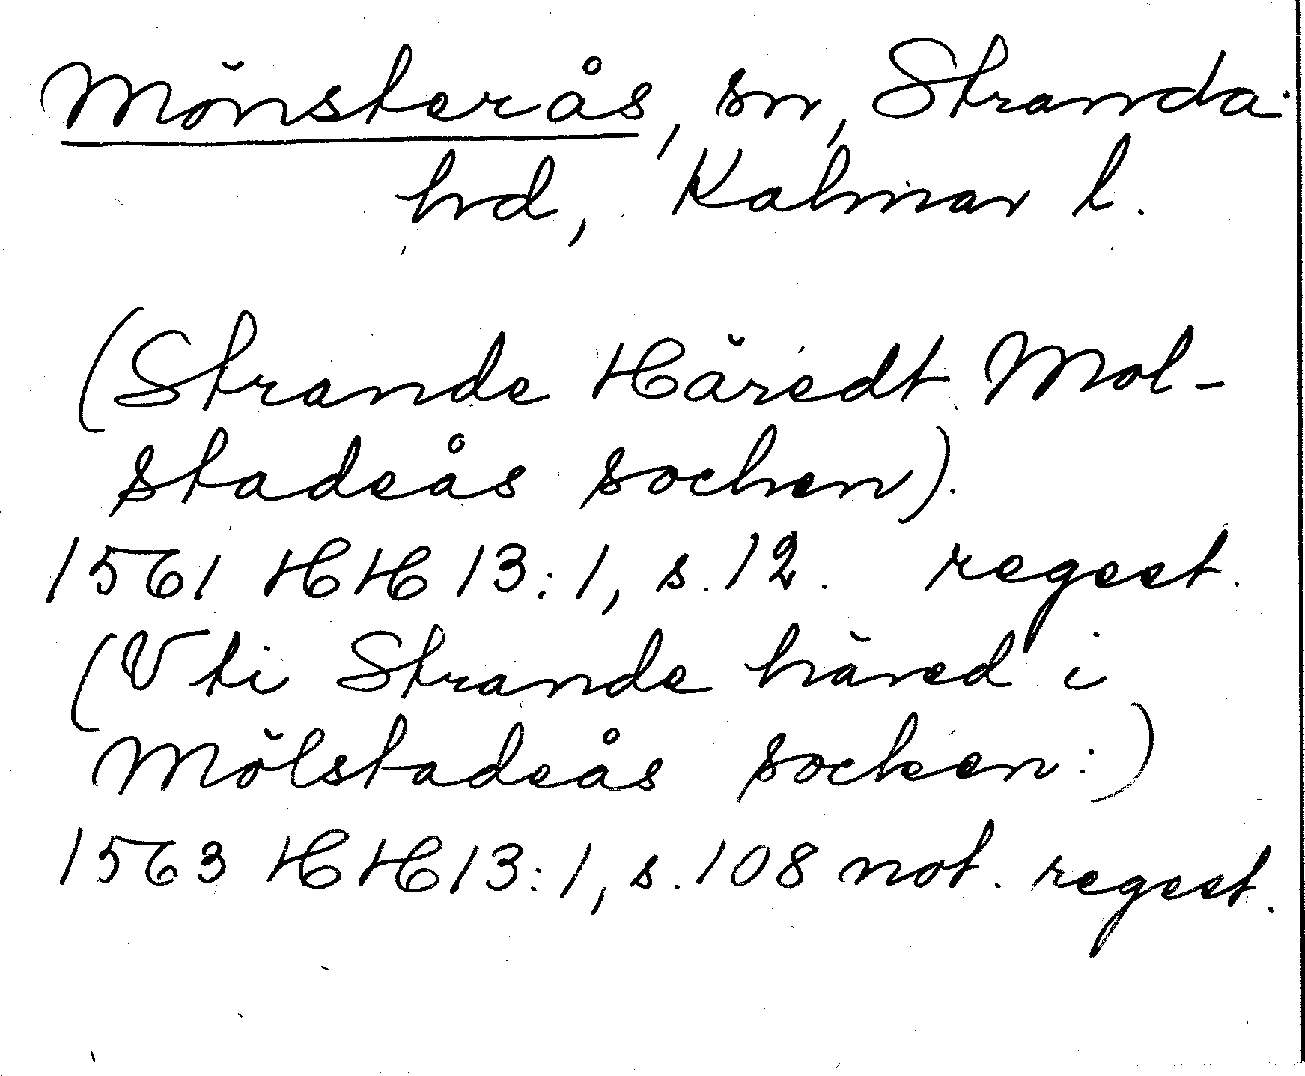 Mönsterås, sn, Stranda
hrd, Kalmar l.
(Strande Häredt Mol-
stadeås sochen).
1561 HH 13:1, s. 12. regest.
(Vti Strande häred i
Mölstadeås socken.)
1563 HH 13:1, s. 108 not. regest.